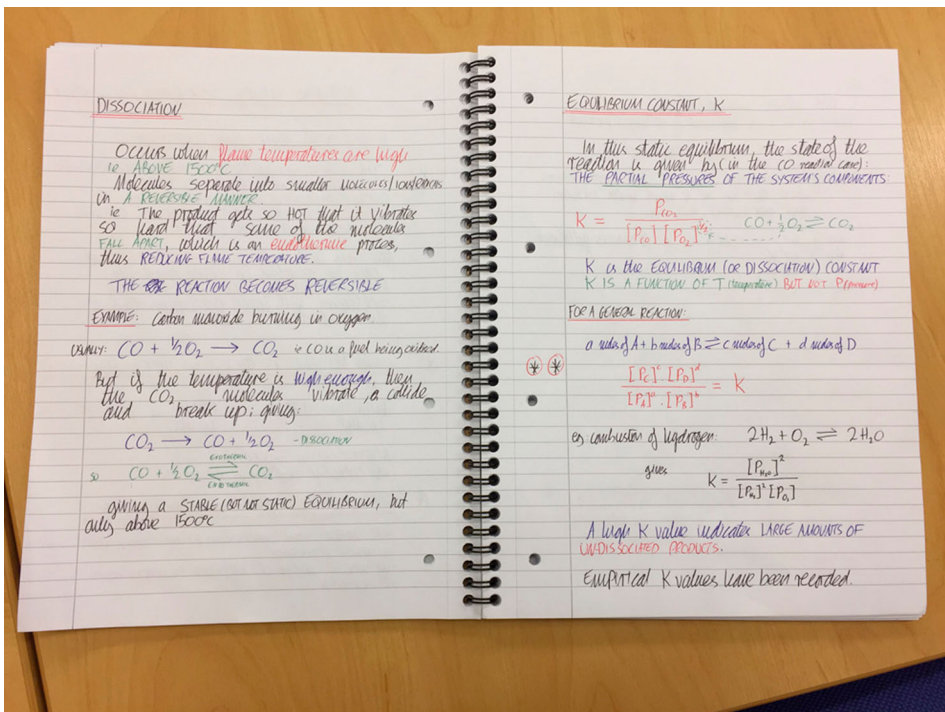 DISSOCIATION
OCCURS when flame temperatures are high
ie ABOVE 1500°C
Molecules seperate into smaller MOLECULES/
in A REVERSIBLE MANNER.
ie The product gets so HOT that it vibrates
so hard that some of the molecules
FALL APART, which is an endothermic process,
thus REDUCING FLAME TEMPERATURE.
THE REACTION BECOMES REVERSIBLE
EXAMPLE: Carbon monoxide burning in oxygen.
USUALLY: CO + ½O₂ → CO₂ ie CO is a fuel being oxidised.
But if the temperature is high enough, then
the CO₂ molecules vibrate, collide
and break up; giving:
CO₂ → CO + ½O₂ - DISSOCIATION
EXOTHERMIC
so CO + ½O₂ ⇌ CO₂
ENDOTHERMIC
giving a STABLE (BUT NOT STATIC) EQUILIBRIUM, but
only above 1500°C
EQUILIBRIUM CONSTANT, K
In this static equilibrium, the state of the
reaction is given by (in the CO reaction case):
THE PARTIAL PRESSURES OF THE SYSTEM'S COMPONENTS:
K = P_CO₂ / [P_CO] [P_O₂]^½ CO + ½O₂ ⇌ CO₂
K is the EQUILIBRIUM (OR DISSOCIATION) CONSTANT
K IS A FUNCTION OF T (temperature) BUT NOT P (pressure)
FOR A GENERAL REACTION:
a moles of A + b moles of B ⇌ c moles of C + d moles of D
[P_C]^c . [P_D]^d / [P_A]^a . [P_B]^b = K
eg combustion of hydrogen: 2H₂ + O₂ ⇌ 2H₂O
gives K = [P_H₂O]² / [P_H₂]² [P_O₂]
A high K value indicates LARGE AMOUNTS OF
UN-DISSOCIATED PRODUCTS.
Empirical K values have been recorded.